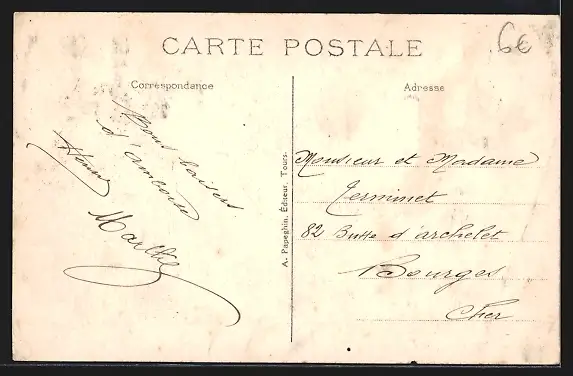 CARTE POSTALE
6€
Correspondance
Adresse
d'amboise
Henri
Marthe
A. Papeghin, Éditeur, Tours.
Monsieur et Madame
Terminet
82 Butte d'archelet
Bourges
Cher